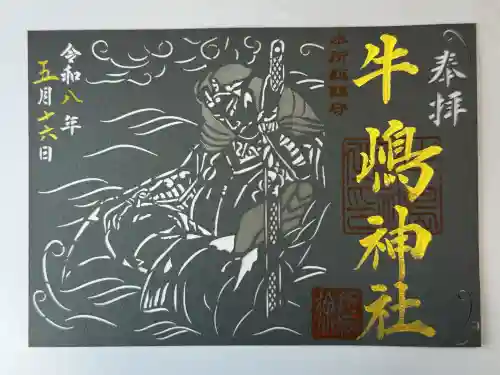 奉拝
牛嶋神社
本所總鎮守
令和八年
五月十六日